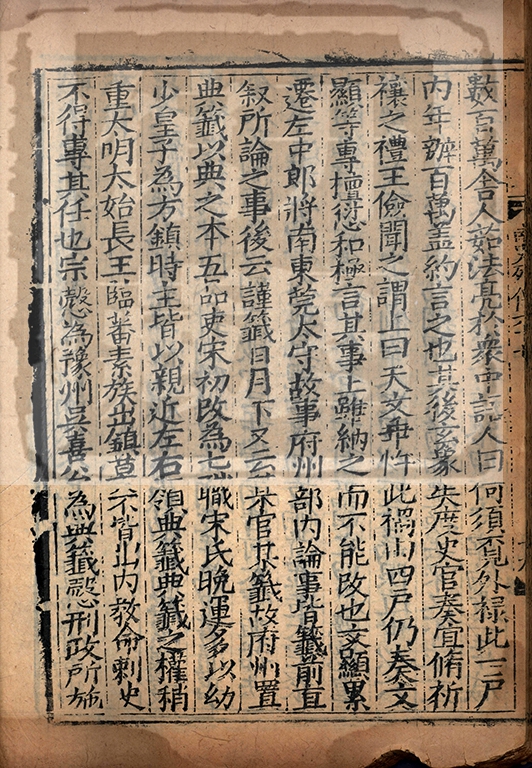 數百萬舍人茹法亮於衆中語人曰何須覔外祿此一戶
内年辦百萬盖約言之也其後玄象失度史官奏宜脩祈
禳之禮王儉聞之謂上曰天文乖忤此禍由四戶仍奏文
顯等專擅愆和極言其事上雖納之而不能改也文顯累
遷左中郎將南東莞太守故事府州部内論事皆籤前直
叙所論之事後云謹籤日月下又云某官某籤故府州置
典籤以典之本五品吏宋初改為七職宋氏晚運多以幼
少皇子為方鎮時主皆以親近左右領典籤典籤之權稍
重大明太始長王臨蕃素族出鎮莫不皆出内敎命刺史
不得專其任也宗慤為豫州吳喜公為典籤慤刑政所施